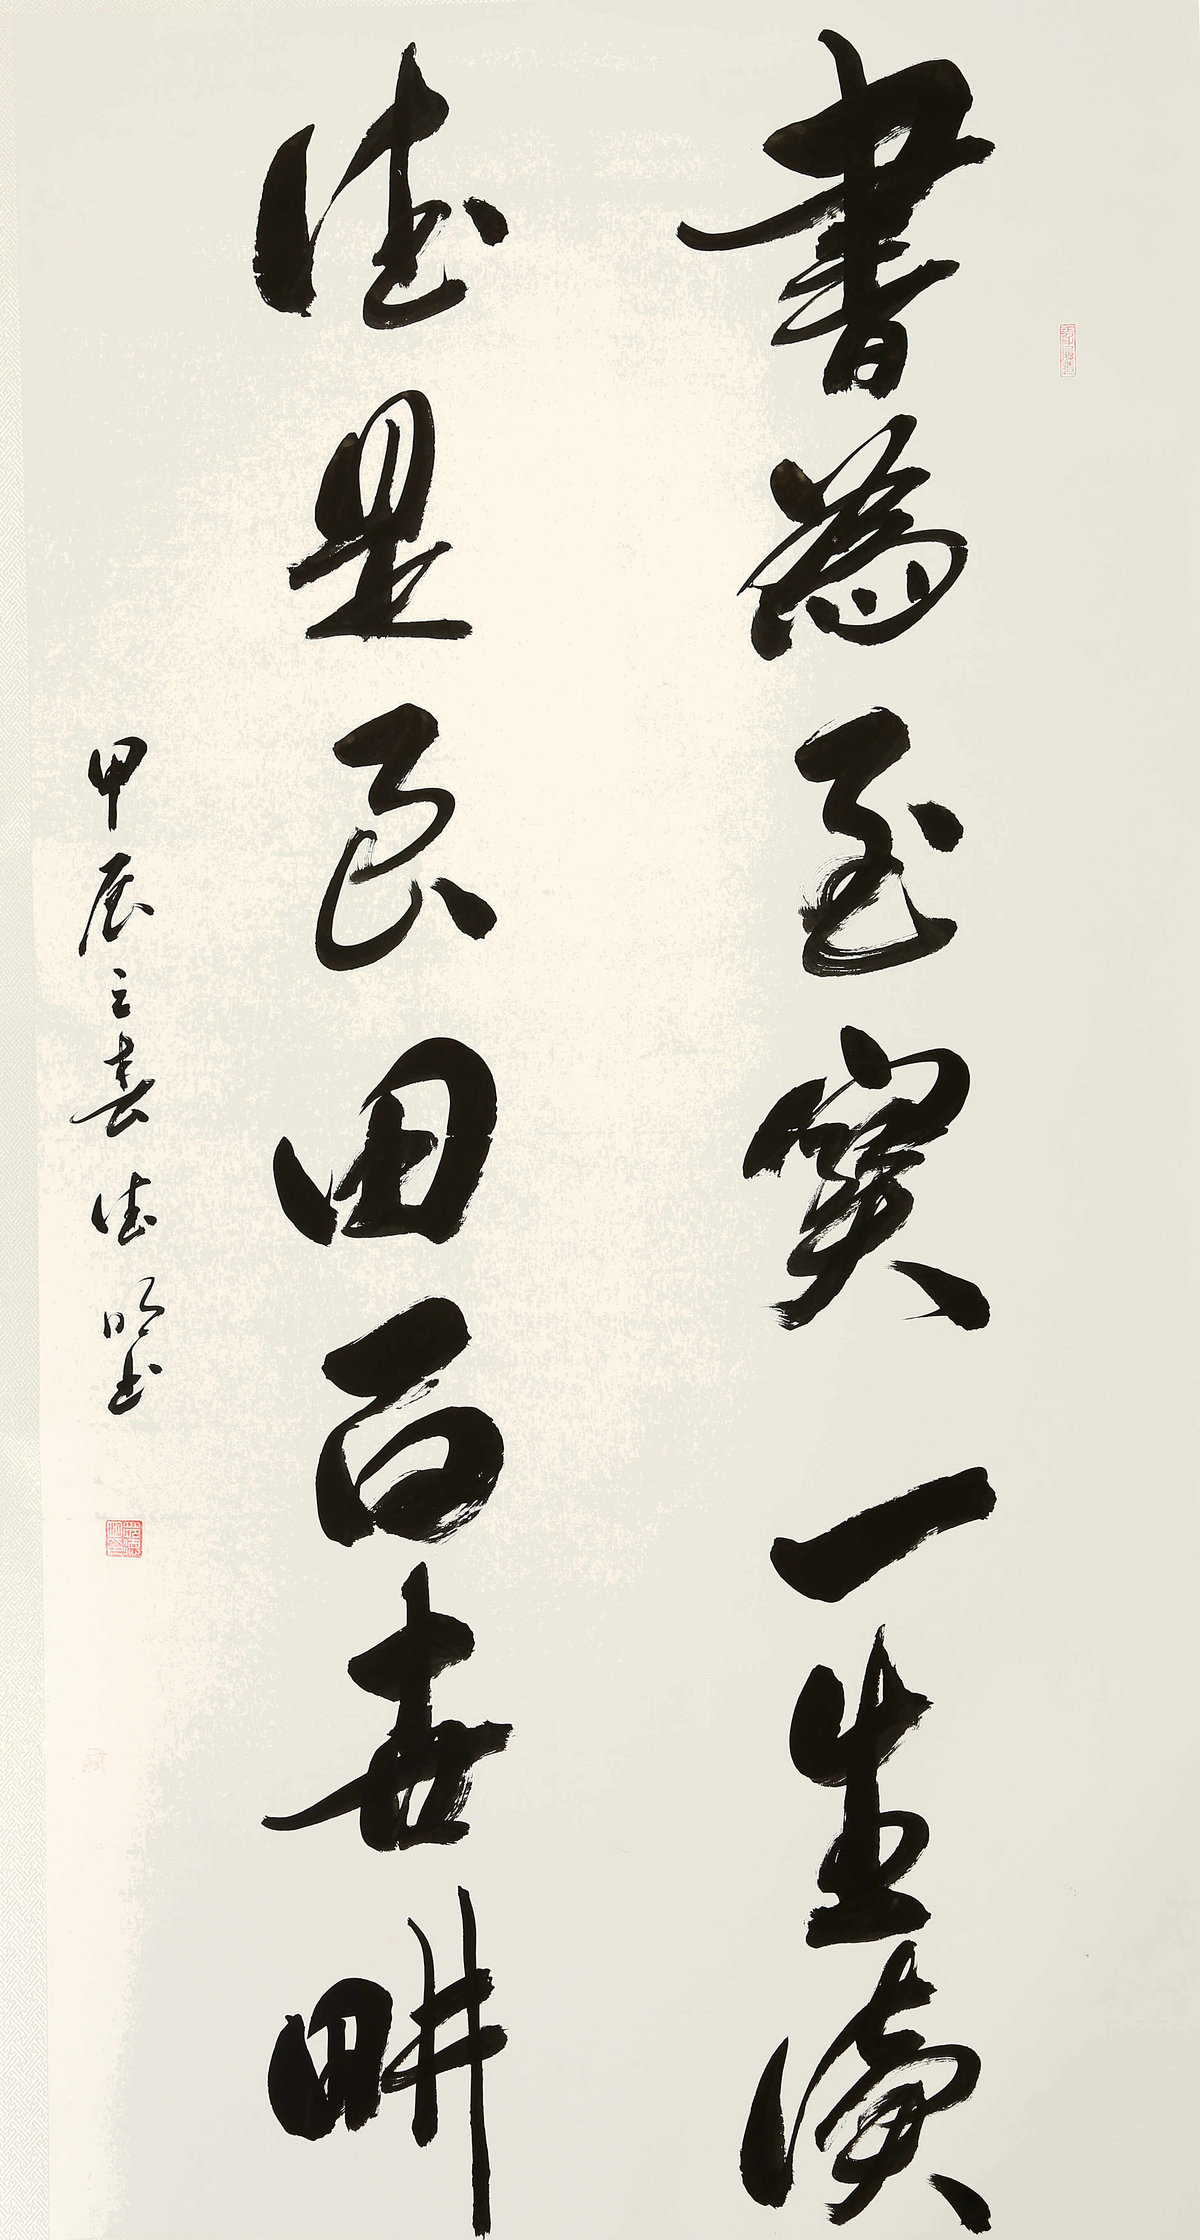 書為至寶一生讀
德是良田百世畊
甲辰之春德明书